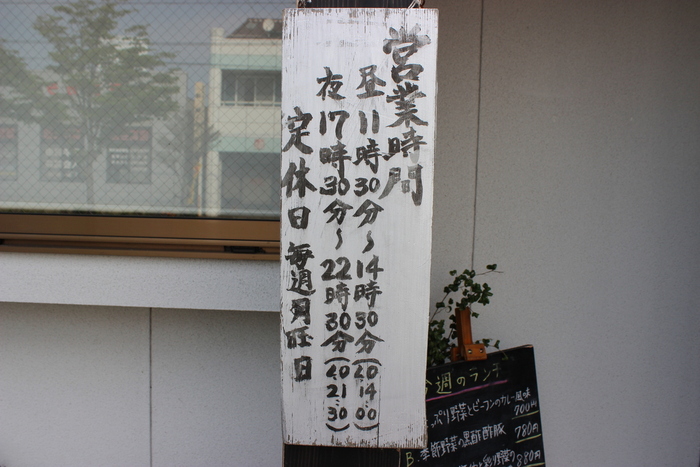 営業時間
昼 11時30分〜14時30分(LO 14:00)
夜 17時30分〜22時30分(LO 21:30)
定休日 毎週月曜日
今週のランチ
っぷり野菜とビーフンのカレー風味
700円
B. 季節野菜の黒酢酢豚 780円
880円